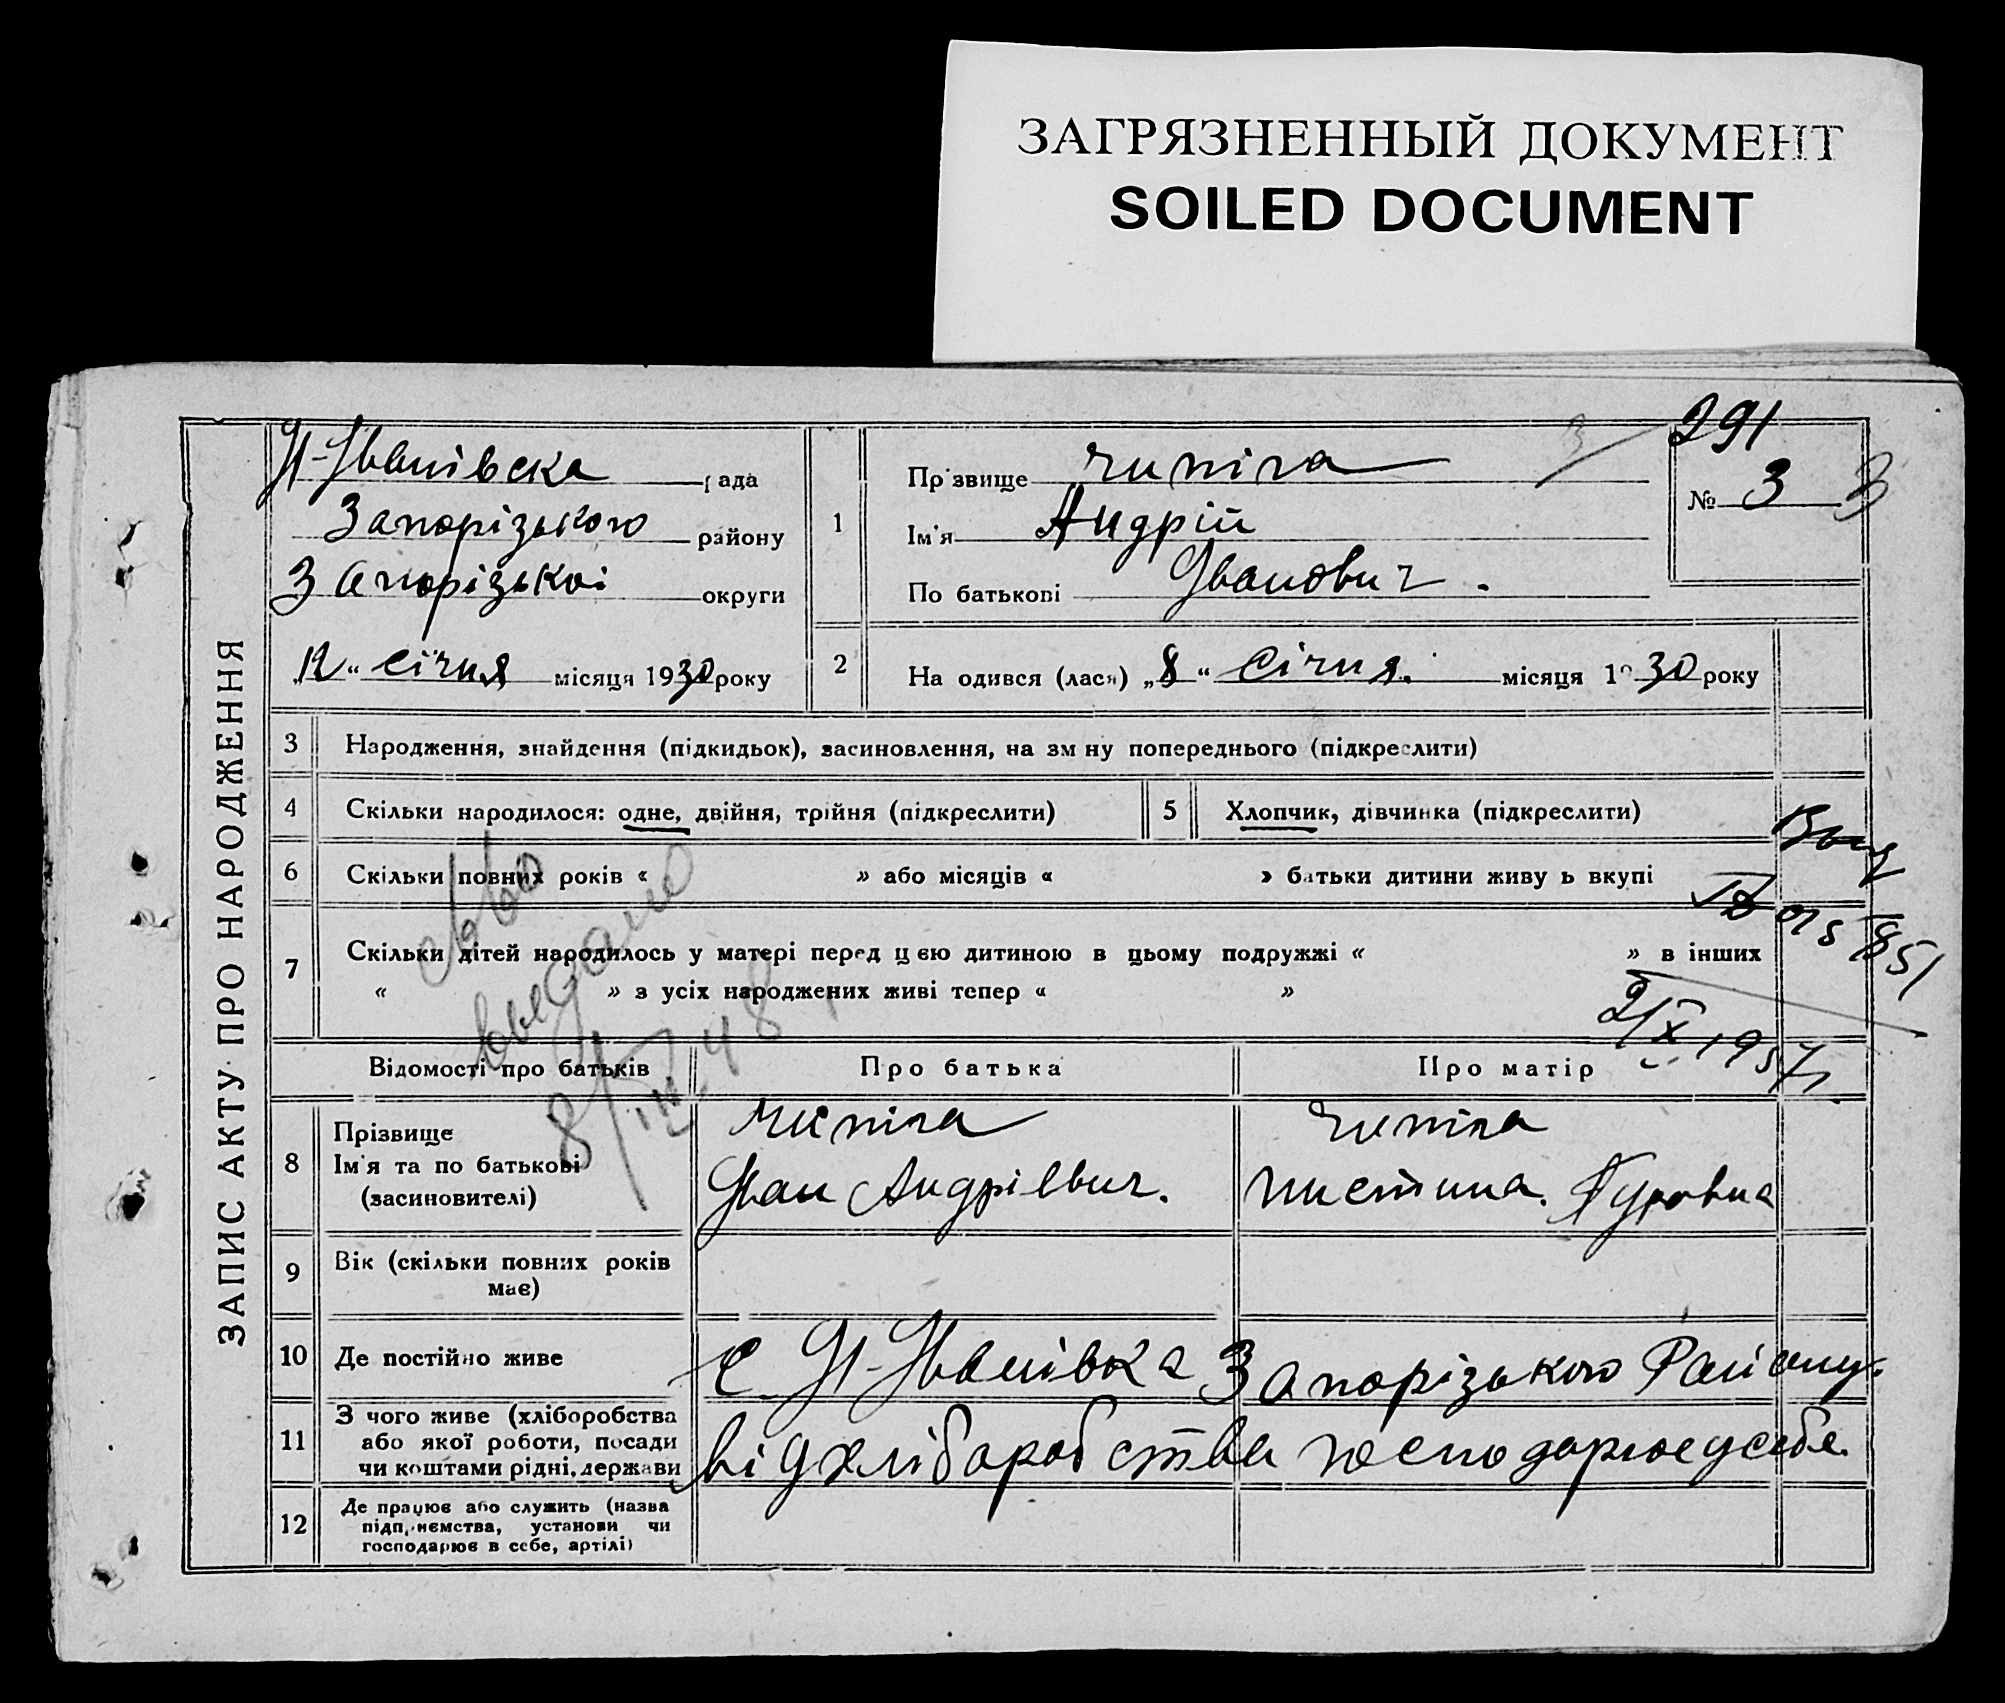 ЗАГРЯЗНЕННЫЙ ДОКУМЕНТ
SOILED DOCUMENT
291
Н-Іванівска рада
Запорізького району
Запорізькоі округи
„12“ січня місяця 1930 року
1
Прізвище Чипіга
Ім'я Андрій
По батькові Іванович.
№ 3
3
2
На одився (лася) „8“ Січня. місяця 1930 року
ЗАПИС АКТУ ПРО НАРОДЖЕННЯ
3 Народження, знайдення (підкидьок), засиновлення, на зм ну попереднього (підкреслити)
4 Скільки народилося: одне, двійня, трійня (підкреслити)
5 Хлопчик, дівчинка (підкреслити)
6 Скільки повних років « » або місяців « » батьки дитини живу ь вкупі
7 Скільки дітей народилось у матері перед цею дитиною в цьому подружжі « » в інших
« » з усіх народжених живі тепер « »
св-во
выдано
8/IV 48
2/X 1957
Відомості про батьків
Про батька
Про матір
8 Прізвище
Ім'я та по батькові
(засиновителі)
Чипіга
Іван Андрієвич.
Чипіга
Гуровна
9 Вік (скільки повних років
має)
10 Де постійно живе
с. Н-Іванівка Запорізького Району.
11 З чого живе (хліборобства
або якої роботи, посади
чи коштами рідні, держави
від хліборобства господарює у себе.
12 Де працює або служить (назва
підп, нємства, установи чи
господарює в себе, артілі)